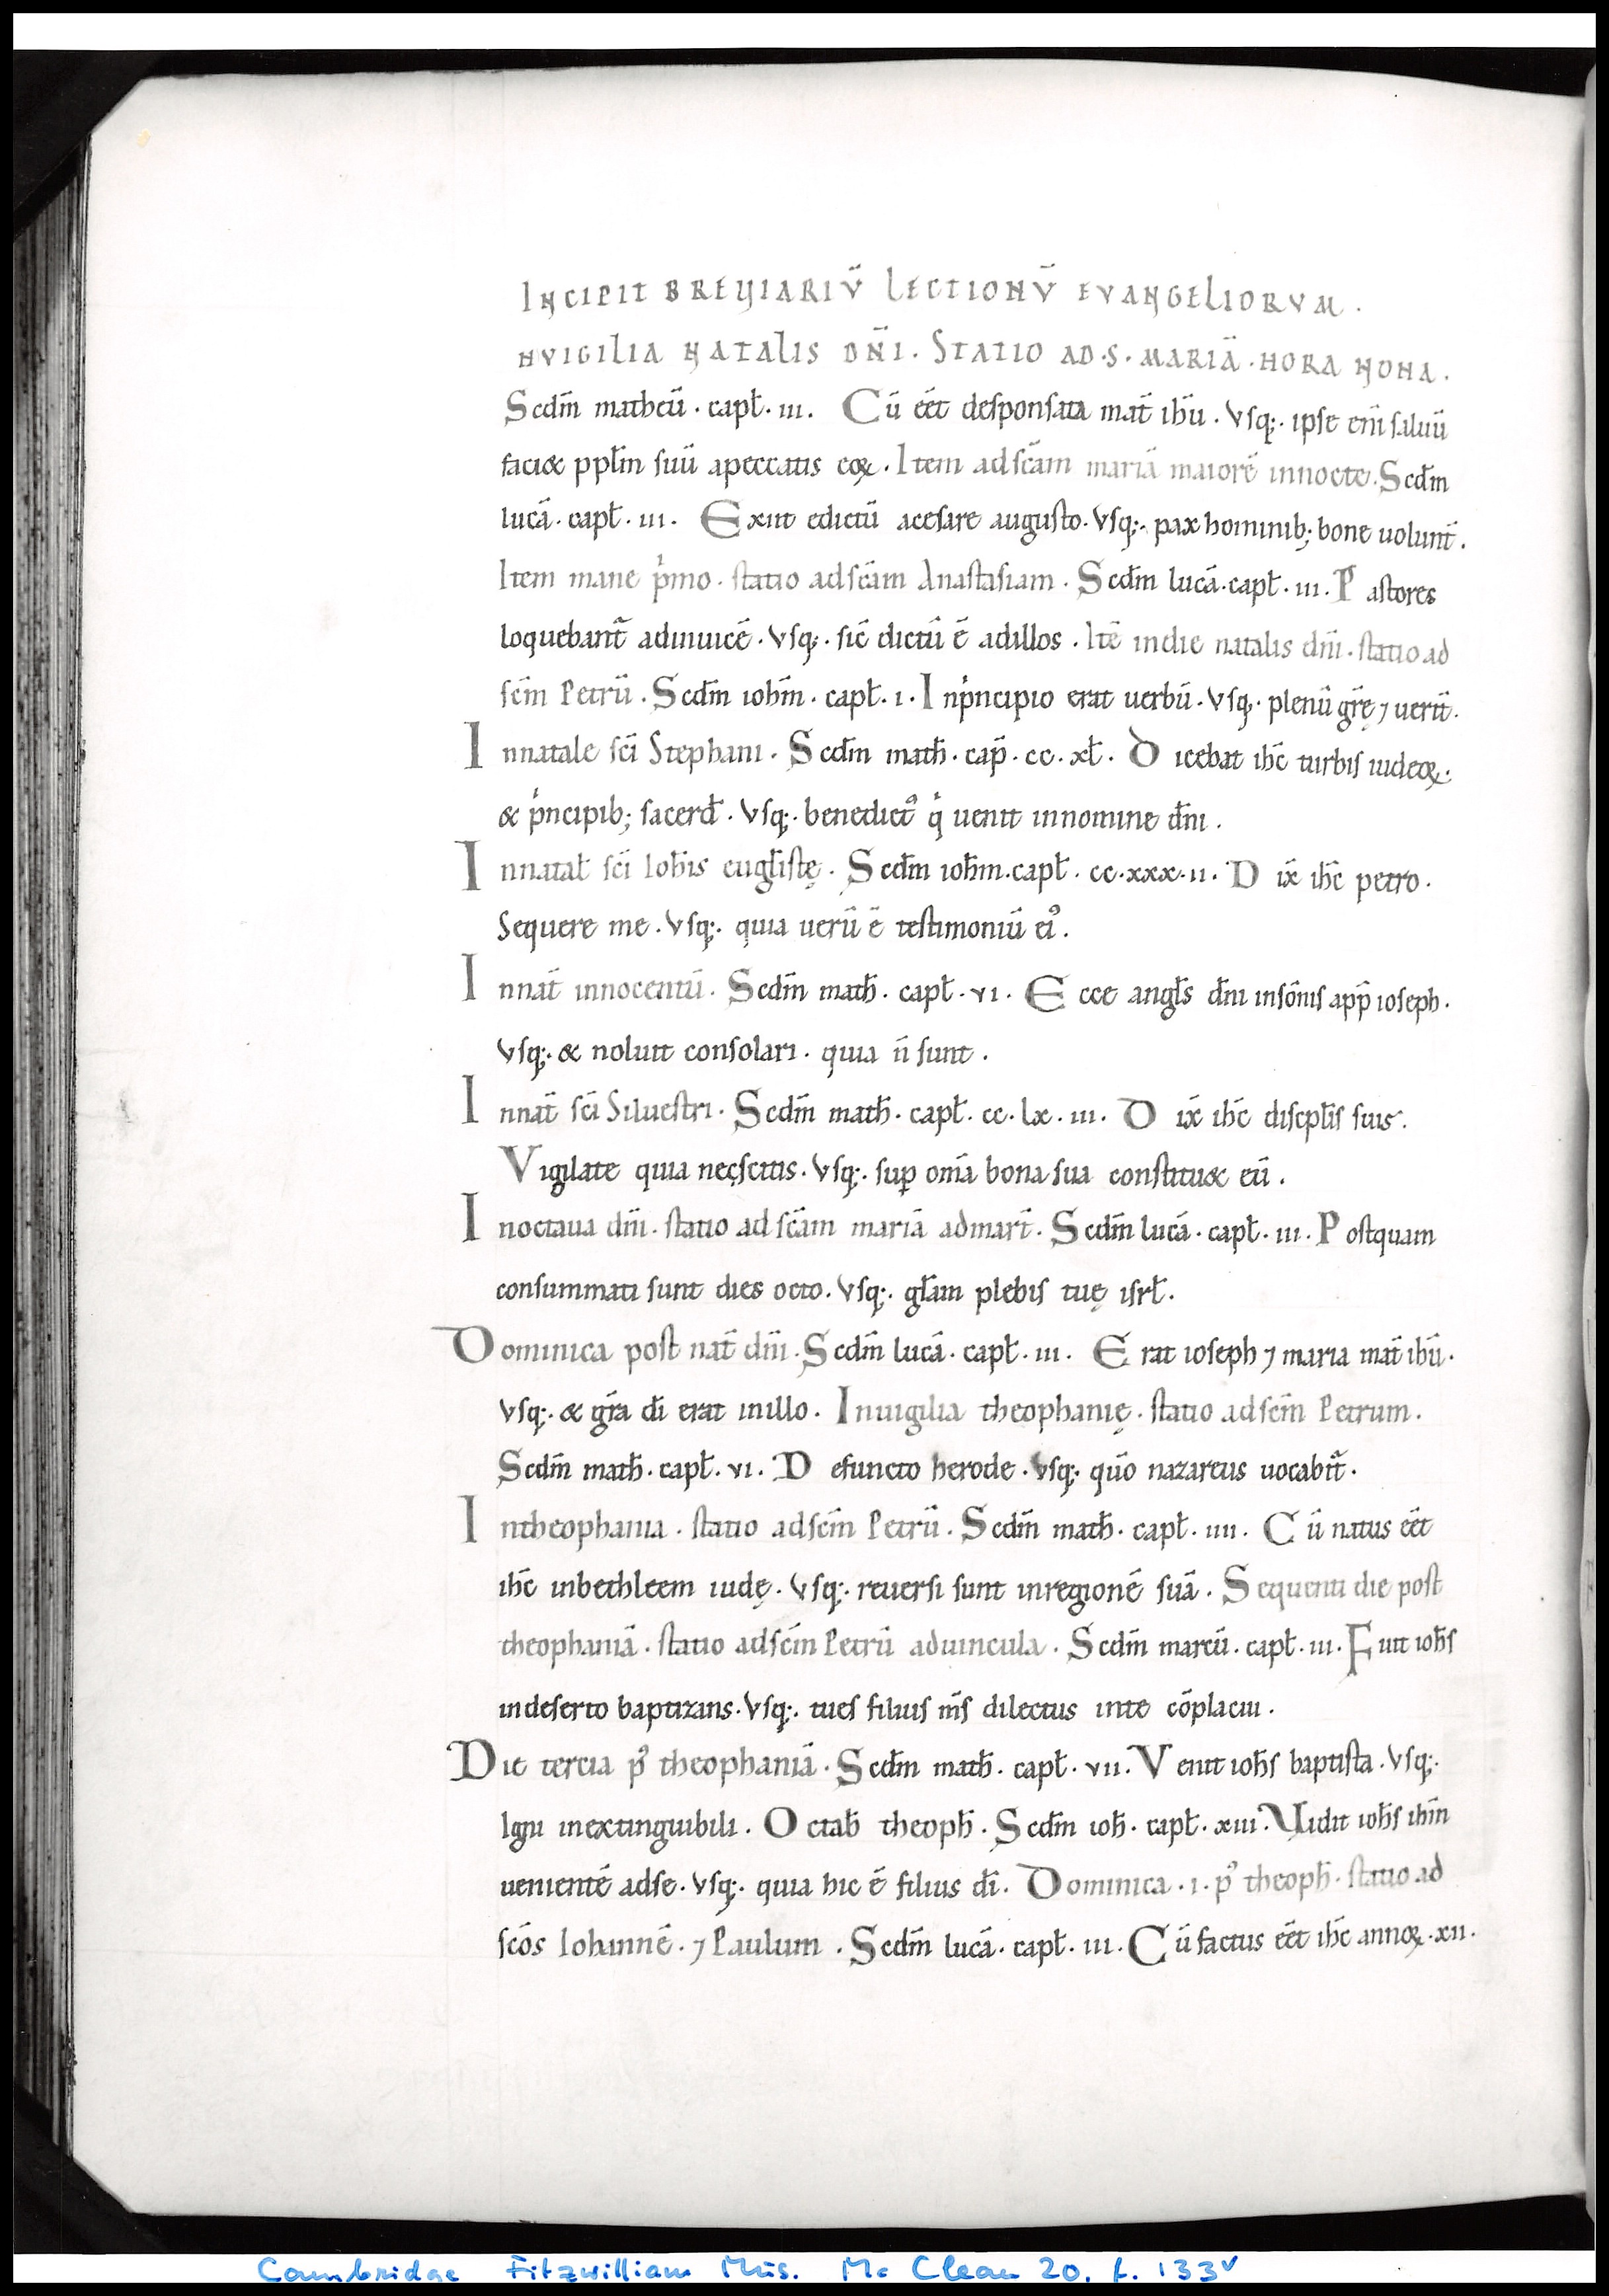 INCIPIT BREVIARIŪ LECTIONŪ EVANGELIORVM.
NVIGILIA NATALIS DÑI. STATIO AD·S·MARIĀ·HORA NONA.
Scdm̄ matheū· capt̄· iii. Cū eēt desponsata mat̄ ihū. Vsq;· ipse eni saluū
faci& ppl̄m suū apeccatis eoꝝ. Item ad scām mariā maiorē innocte. Scdm̄
lucā· capt̄· iii. Exiit edictū acesare augusto. Vsq;· pax hominib; bone uolunt̄.
Item mane pͥmo· statio ad scām Anastasiam. Scdm̄ lucā·capt̄· iii. Pastores
loquebant̄ adinuicē· Vsq;· sic̄ dictū ē adillos. Itē indie natalis dn̄i· statio ad
scm̄ Petrū. Scdm̄ iohm̄· capt̄· i. Inpͥncipio erat uerbū· Vsq;· plenū grē ⁊ uerit̄.
Innatale sc̄i Stephani. Scdm̄ math̄· cap̄· cc· xl̄. Dicebat ihc̄ turbis iudeoꝝ.
& pͥncipib; sacerd̄. Vsq;· benedict᾿ qͥ uenit innomine dn̄i.
Innatal̄ sc̄i Ioh̄is eugl̄istę. Scdm̄ ioh̄m·capt̄· cc·xxx·ii. Dix̄ ihc̄ petro.
Sequere me. Vsq;· quia uerū ē testimoniū ei᾿.
Innat̄ innocentū. Scdm̄ math̄· capt̄· vi. Ecce angl̄s dn̄i insōnis app̄ ioseph.
Vsq;· & noluit consolari· quia n̄ sunt.
Innat̄ sc̄i Siluestri. Scdm̄ math̄· capt̄· cc· lx· iii. Dix̄ ihc̄ discipl̄is suis.
Vigilate quia nescitis. Vsq;· suꝑ omā bona sua constitu& eū.
Inoctaua dn̄i· statio ad scām mariā admart̄. Scdm̄ lucā· capt̄· iii. Postquam
consummati sunt dies octo. Vsq;· gl̄am plebis tuę isrl̄.
Dominica post nat̄ dn̄i. Scdm̄ lucā· capt̄· iii. Erat ioseph ⁊ maria mat̄ ihū.
Vsq;· & gr̄a dī erat inillo. Inuigilia theophanię· statio adscm̄ Petrum.
Scdm̄ math̄· capt̄· vi. Defuncto herode. Vsq;· qūo nazareus uocabit̄.
Intheophania· statio adscm̄ Petrū. Scdm̄ math̄· capt̄· iiii. Cū natus eēt
ihc̄ inbethleem iudę. Vsq;· reuersi sunt inregionē suā. Sequenti die post
theophaniā· statio adscm̄ Petrū aduincula. Scdm̄ marcū· capt̄· iii. Fuit ioh̄s
indeserto baptizans. Vsq;· tues filius m̄s dilectus inte cōplacui.
Die tercia p᾿ theophaniā. Scdm̄ math̄· capt̄· vii. Venit ioh̄s baptista. Vsq;·
Igni inextinguibili. Octab̄ theoph̄. Scdm̄ ioh̄· capt̄· xiii. Vidit ioh̄s ihm̄
uenientē adse. Vsq;· quia hic ē filius dī. Dominica· i· p᾿ theoph̄· statio ad
scōs Iohannē· ⁊ Paulum. Scdm̄ lucā· capt̄· iii. Cū factus eēt ihc̄ annoꝝ·xii.
Cambridge Fitzwilliam Mus. Mc Clean 20. f. 133v